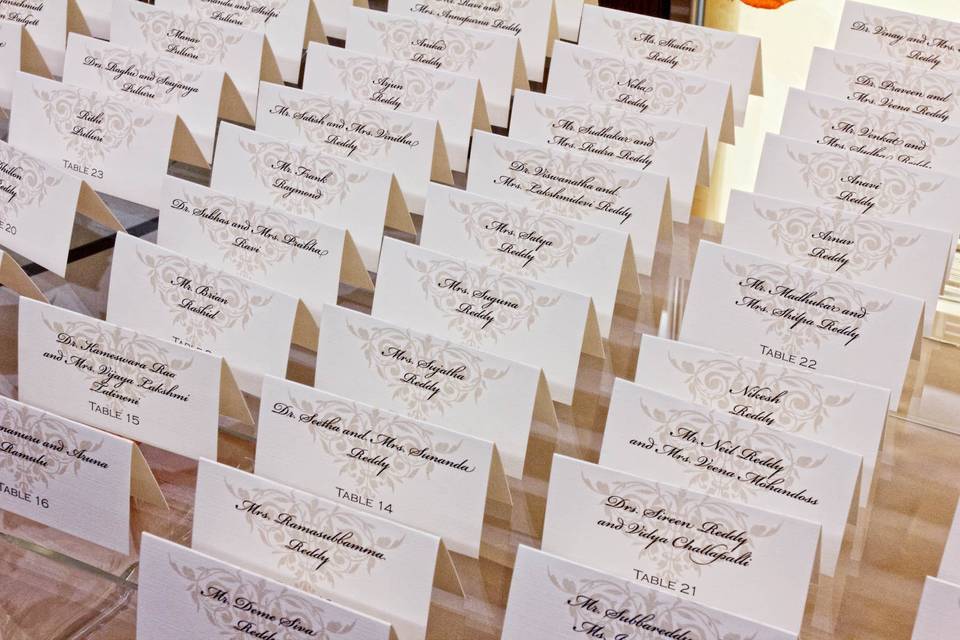 Pulluri
Manav
Pulluri
Drs. Raghu and Soujanya
Pulluri
Rithi
Pulluri
TABLE 23
TABLE 20
Reddy
Anika
Reddy
Arjun
Reddy
Mr. Satish and Mrs. Vinitha
Reddy
Mr. Frank
Raymond
Dr. Subhas and Mrs. Pratibha
Ravi
Mr. Brian
Rashid
Dr. Kameswara Rao
and Mrs. Vijaya Lakshmi
Tatineni
TABLE 15
and Aruna
Ramulu
TABLE 16
Ms. Shalini
Reddy
Neha
Reddy
Mr. Sudhakar and
Mrs. Rudra Reddy
Dr. Viswanatha and
Mrs. Lakshmidevi Reddy
Mrs. Satya
Reddy
Mrs. Suguna
Reddy
Mrs. Sujatha
Reddy
Dr. Seetha and Mrs. Sunanda
Reddy
TABLE 14
Mrs. Ramasubbamma
Reddy
Mr. Deme Siva
Reddy
Dr. Vinay and Mrs.
Reddy
Dr. Praveen and
Mrs. Veena Reddy
Mr. Venkat and
Mrs. Sudha Reddy
Anavi
Reddy
Arnav
Reddy
Mr. Madhukar and
Mrs. Shilpa Reddy
TABLE 22
Nikesh
Reddy
Mr. Neil Reddy
and Mrs. Veena Mohandoss
Drs. Sireen Reddy
and Vidya Challapalli
TABLE 21
Mr. Subbareddy